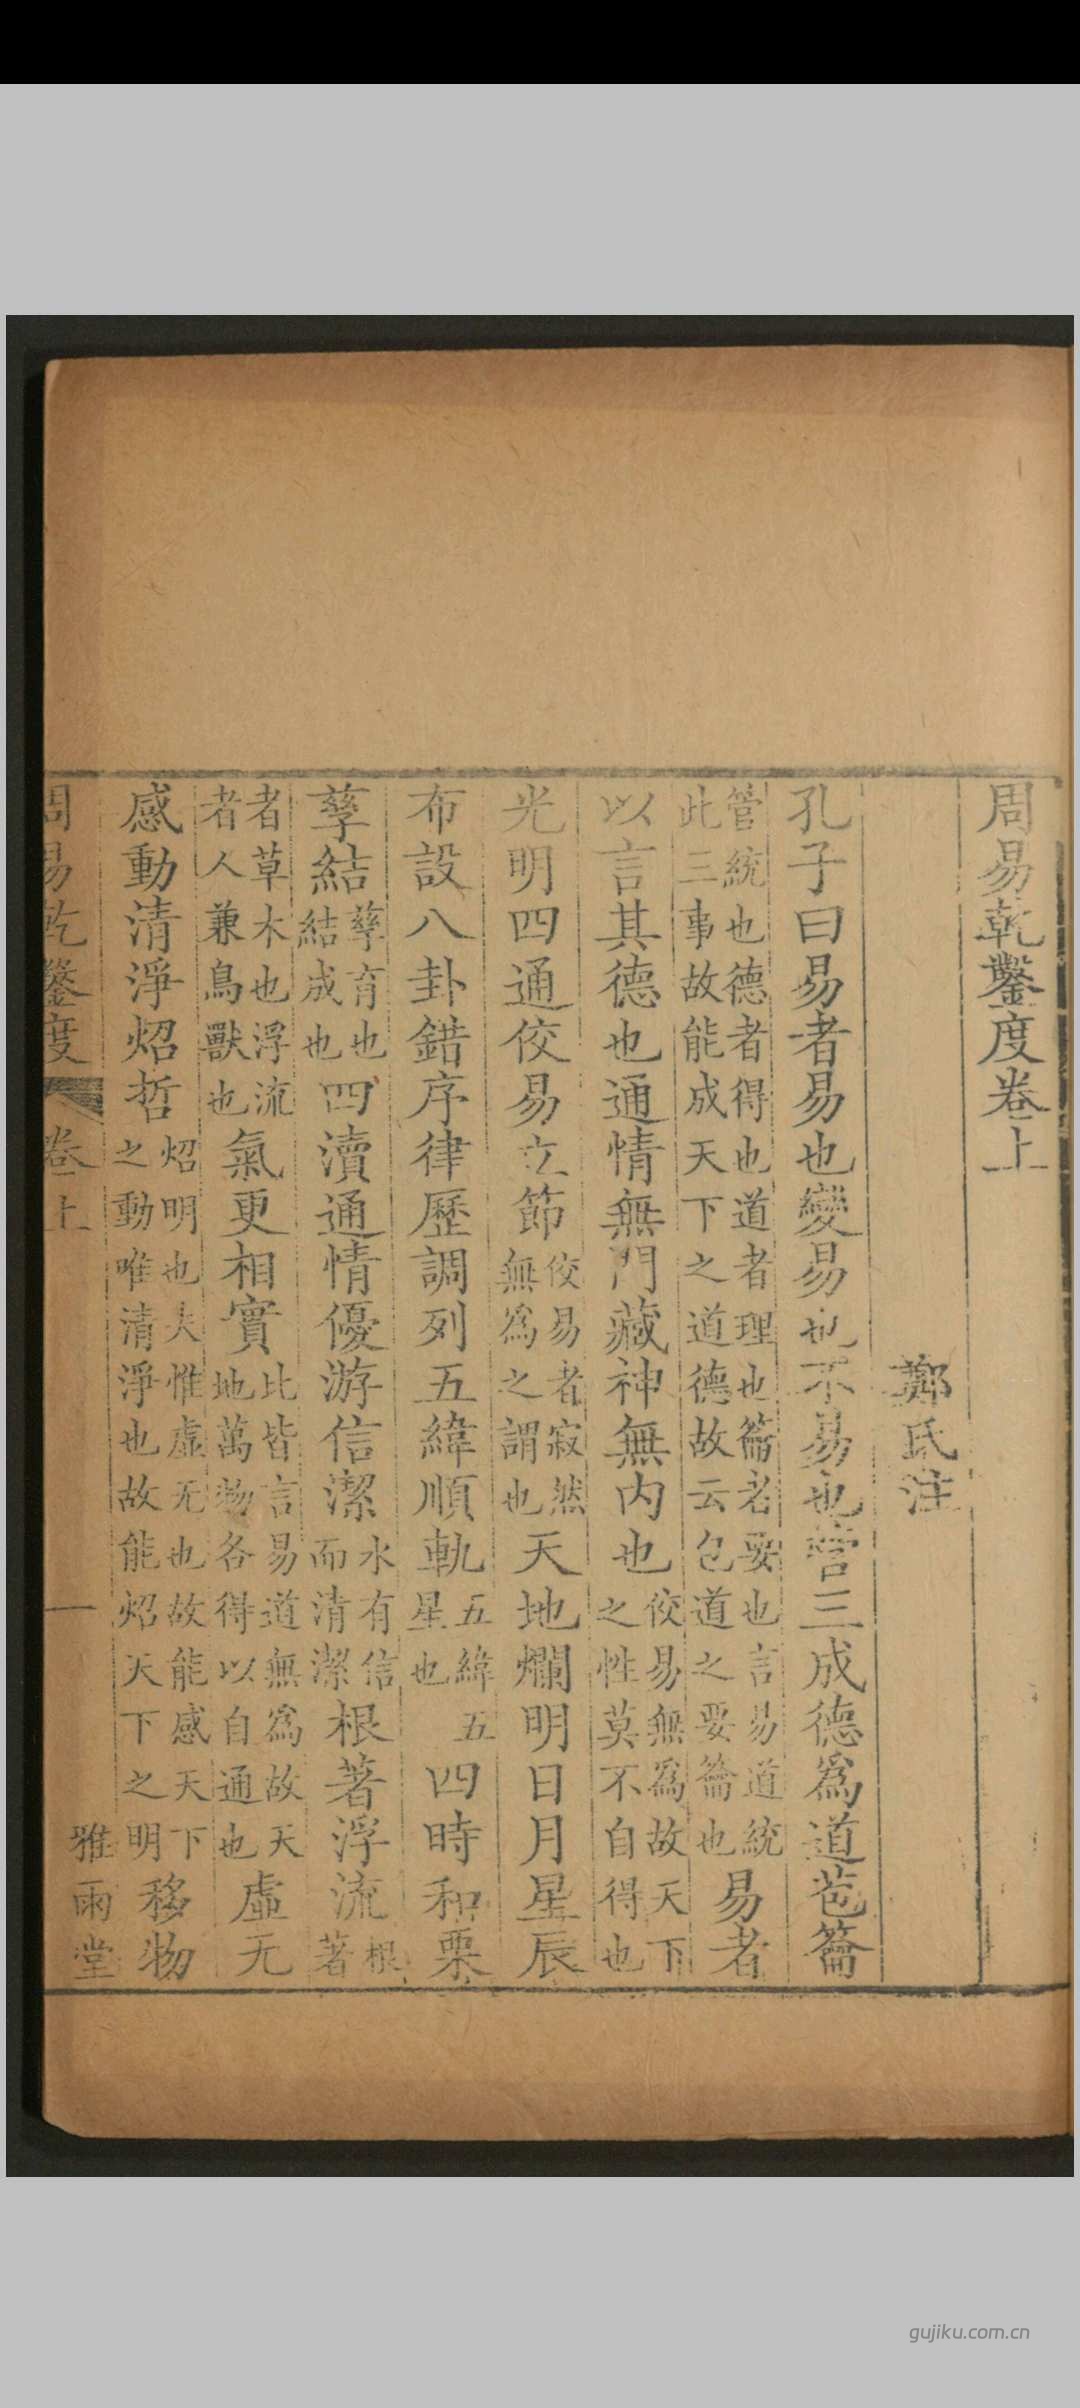 周易乾鑿度卷上
鄭氏注
孔子曰易者易也變易也不易也管三成德爲道苞籥
管統也德者得也道者理也籥者要也言易道統
此三事故能成天下之道德故云包道之要籥也
易者
以言其德也通情無門藏神無內也
佼易無爲故天下
之性莫不自得也
光明四通佼易立節
佼易者寂然
無爲之謂也
天地爛明日月星辰
布設八卦錯序律歷調列五緯順軌
五緯五
星也
四時和栗
孳結
孳育也
結成也
四瀆通情優游信潔
水有信
而清潔
根著浮流
根
著
者草木也浮流
者人兼鳥獸也
氣更相實
此皆言易道無爲故天
地萬物各得以自通也
虛无
感動清淨炤哲
炤明也夫惟虛无也故能感天下
之動唯清淨也故能炤天下之明
移物
周易乾鑿度
卷上
一
雅雨堂
gujiku.com.cn